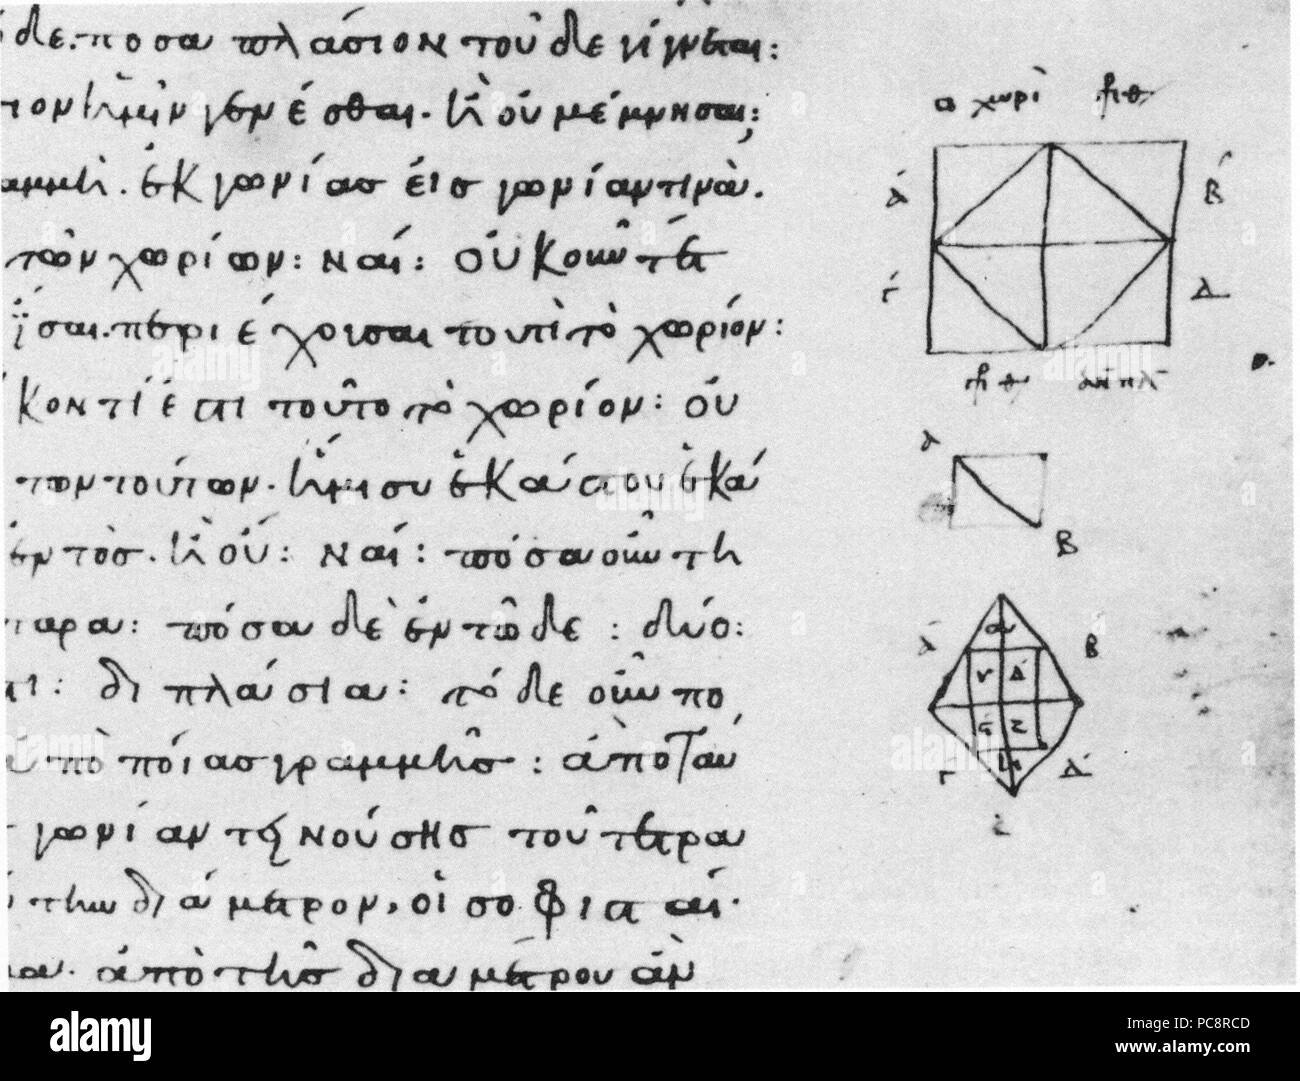 δε. ποσαπλάσιον τοῦδε γίγνεται:
ἡμῖν γενέσθαι. ἢ οὐ μέμνησαι;
αμμὴ. ἐκ γωνίας εἰς γωνίαν τινὰ.
τῶν χωρίων: ναί: οὐκοῦν τέ
ἴσαι. περιέχουσαι τουτὶ τὸ χωρίον:
κοντί ἐστι τοῦτο τὸ χωρίον: οὐ
των τούτων. ἡμισυ ἑκάστου ἑκά
ἐντὸς. ἢ οὔ: ναί: πόσα οὖν τη
ταρα: πόσα δὲ ἐν τῶδε: δύο:
διπλάσια: τόδε οὖν πο
ἀπὸ ποίας γραμμῆς: ἀπὸ ταύ
γωνίαν τεινούσης τοῦ τετρα
την διάμετρον, οἱ σοφισταί.
ἀπὸ τῆς διαμέτρου ἂν
Α Β
Γ Δ
Α
Β
Α Β
Γ Δ
alamy
Image ID: PC8RCD
www.alamy.com